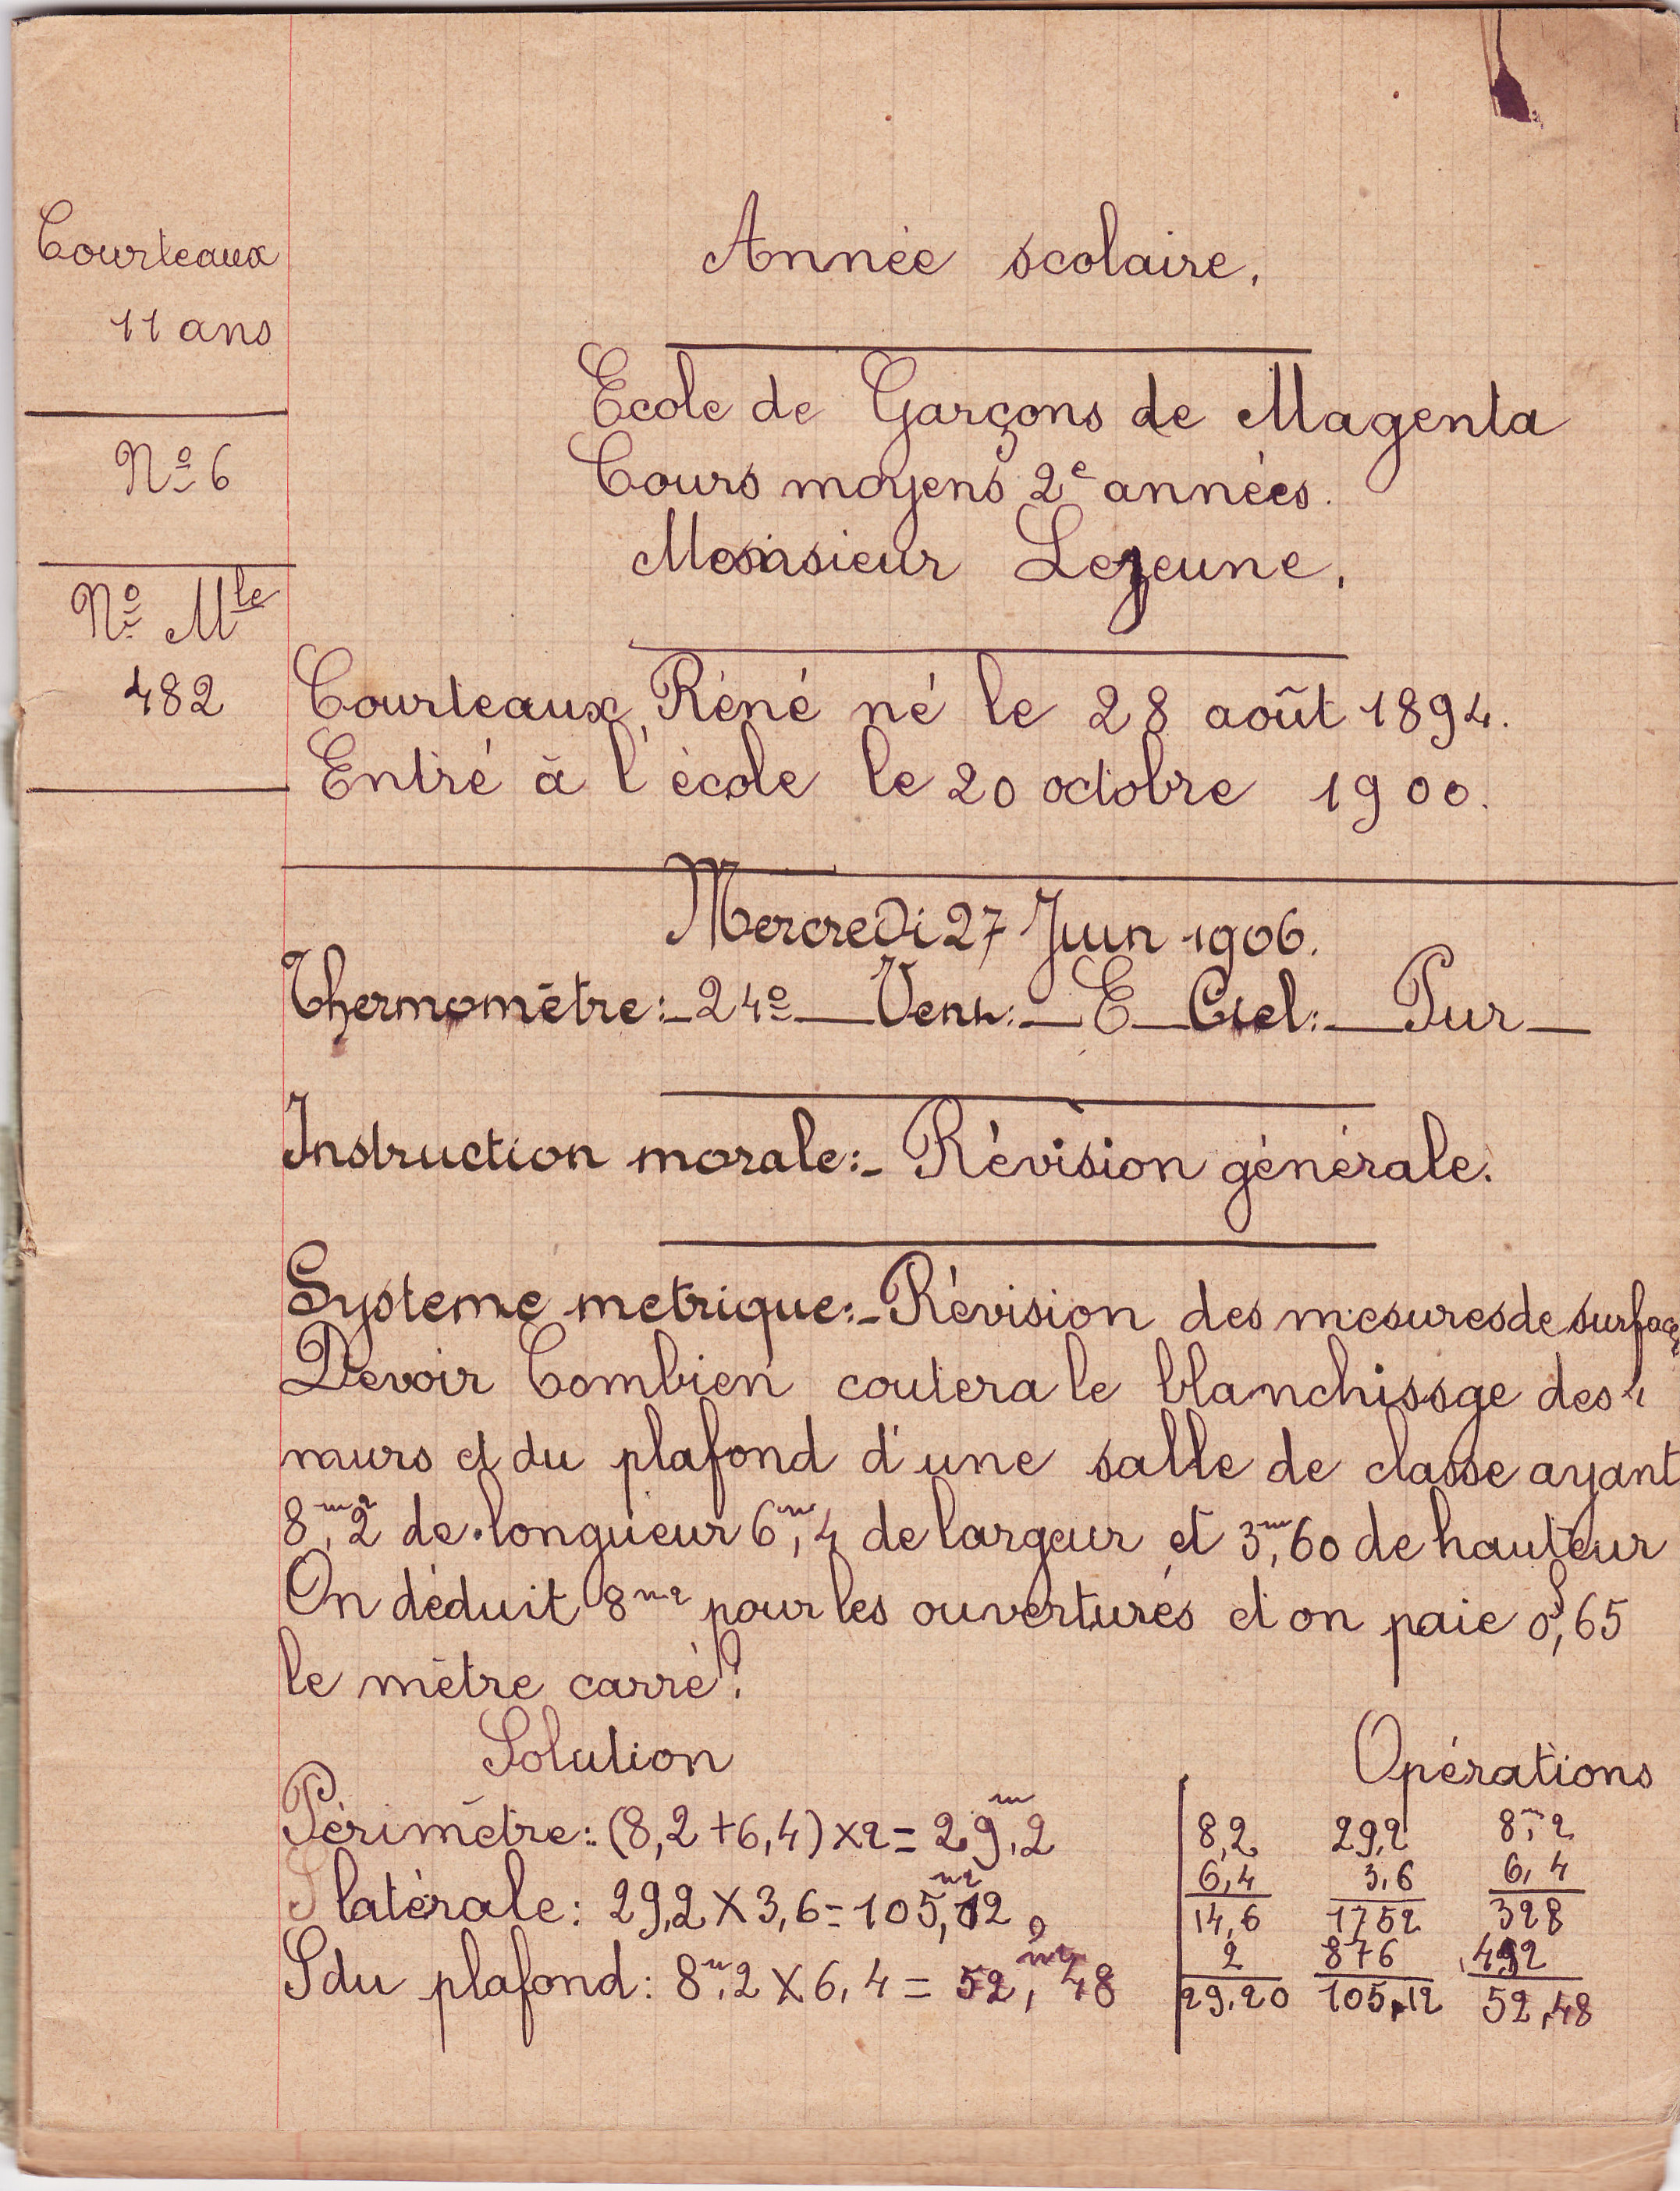 Courteaux
11 ans
Nº 6
Nº Mle
482
Année scolaire.
Ecole de Garçons de Magenta
Cours moyens 2e années.
Monsieur Lejeune.
Courteaux, Réné né le 28 août 1894.
Entré à l'école le 20 octobre 1900.
Mercredi 27 Juin 1906.
Thermomètre:_24º__Vent:_E_Ciel:__Pur_
Instruction morale:- Révision générale.
Systeme metrique:- Révision des mesures de surface
Devoir Combien coutera le blanchissge des 4
murs et du plafond d'une salle de classe ayant
8m,2 de longueur 6m,4 de largeur et 3m,60 de hauteur
On déduit 8m2 pour les ouvertures et on paie 0f,65
le mètre carré?
Solution
Périmètre: (8,2+6,4)×2=29m,2
S latérale: 29,2×3,6=105m2,12
S du plafond: 8m,2×6,4=52m2,48
Opérations
8,2 29,2 8m,2
6,4 3,6 6,4
14,6 1752 328
2 876 492
29,20 105,12 52,48